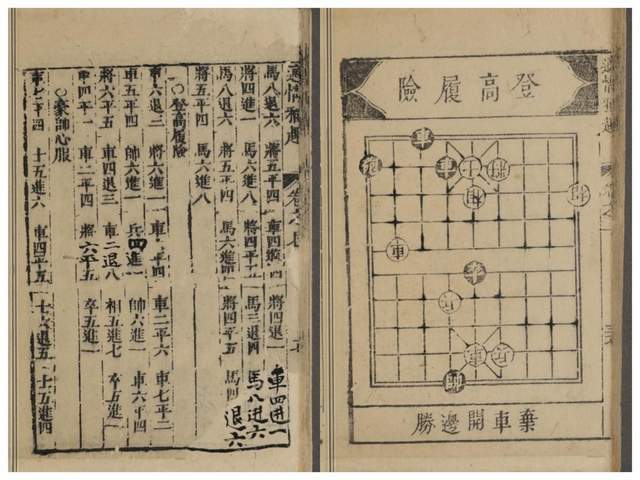 適情雅趣
馬八退六 將五平四 車四進一
將四進一 馬六進八 將四平五 馬三退四 馬八進六
馬八退六 將五平四 將四平五 退六
將五平四 馬六進八
○登高履險
車六退三 將六進一 車二平六 車七平二
車五平四 帥六進一 兵四進一 帥六進一 車六平四
將六平五 車四退三 車二退八 相五進七 卒五進一
車四平一 車二平四 將六平五 卒五進一
○豪帥心服
車七平四 士五進六 車四平五 士六退五 士五進四
適情雅趣
登高履險
車
車 士
車
卒
車
棄車開邊勝